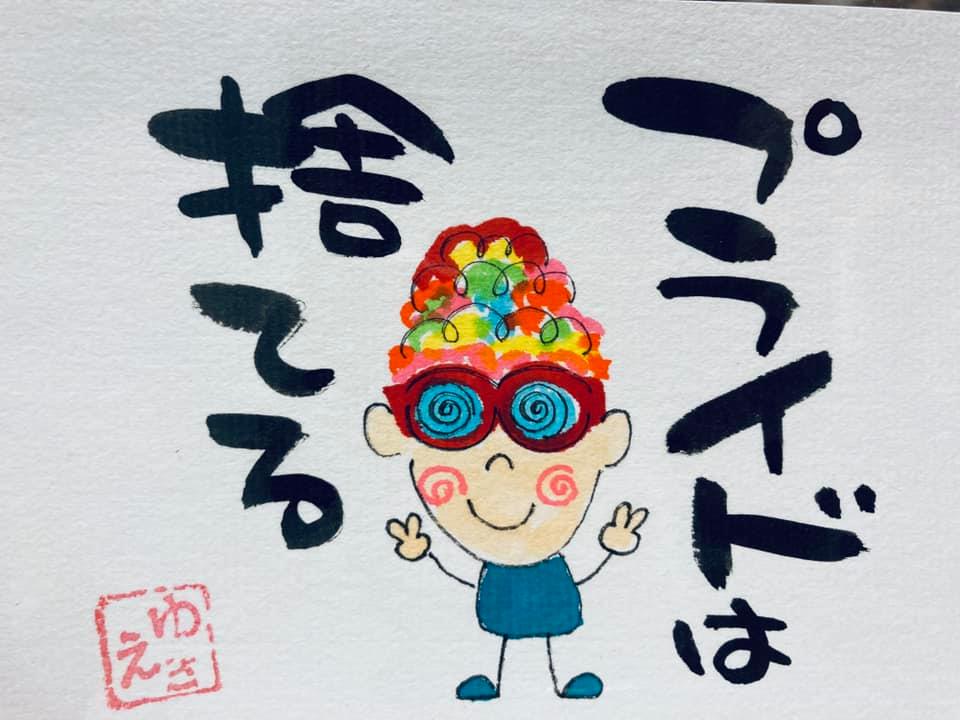 プライドは
捨てる
ゆき
え